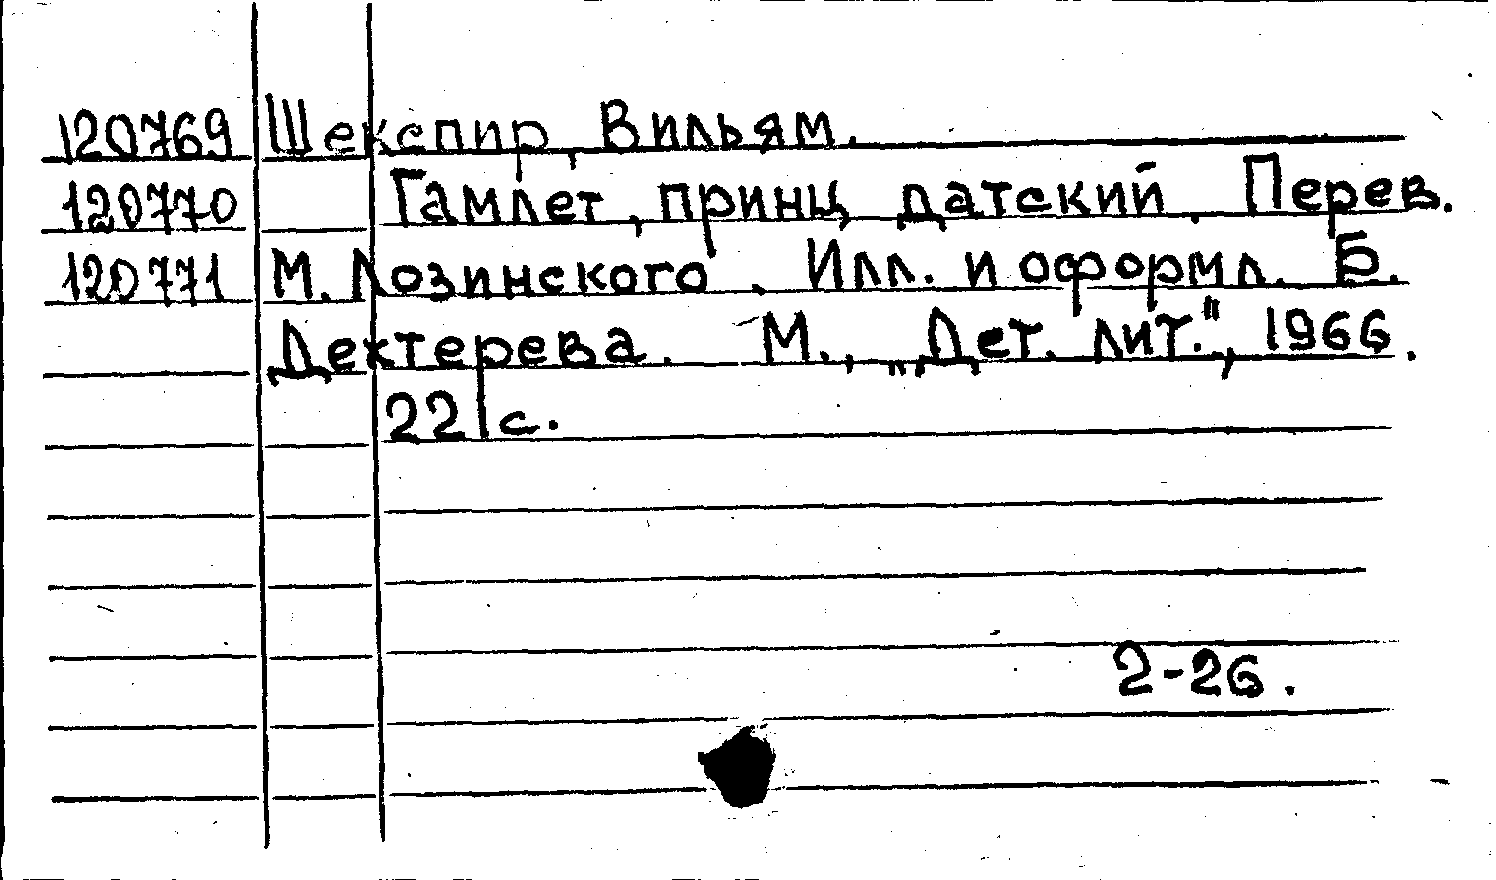 120769 Шекспир, Вильям.
120770 Гамлет, принц датский. Перев.
120771 М. Лозинского. Илл. и оформл. Б.
Дехтерева. М., „Дет. лит.", 1966.
221с.
2-26.